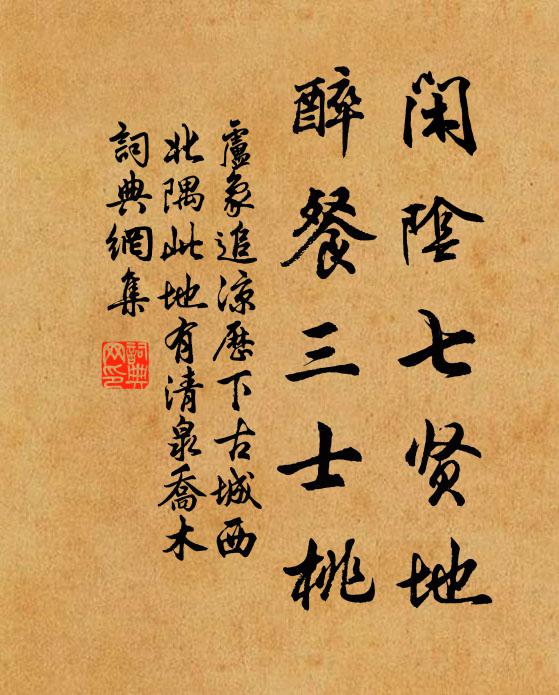 闲阴七贤地
醉餐三士桃
卢象追凉歷下古城西
北隅此地有清泉喬木
詞典網集
詞典
网印